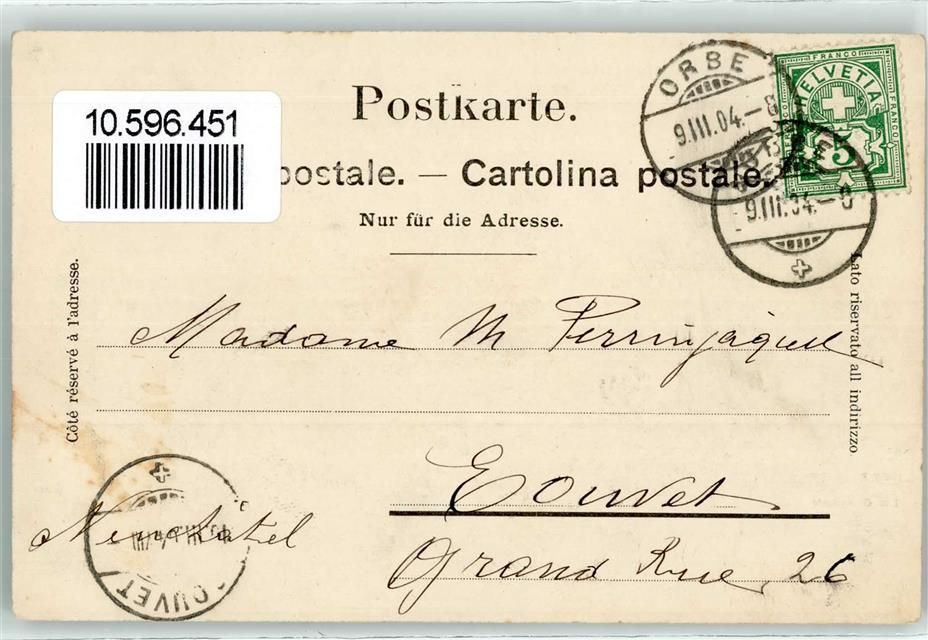 Postkarte.
10.596.451
postale. — Cartolina postale.
Nur für die Adresse.
ORBE
9.III.04.-8
FRANCO
HELVETIA
FRANCO
5
ORBE
9.III.04.-8
Côté réservé à l'adresse.
Lato riservato all indirizzo
Madame M Perrinjaquet
Couvet
Neuchâtel
Grand Rue, 26
COUVET